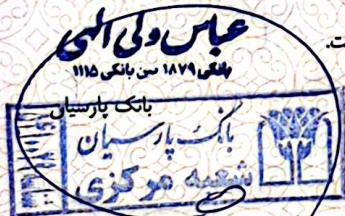 ت.
عباس ولی الهی
بانکی ۱۸۷۹ سن بانکی ۱۱۱۵
بانک پارسیان
بانک پارسیان
شعبه مرکزی